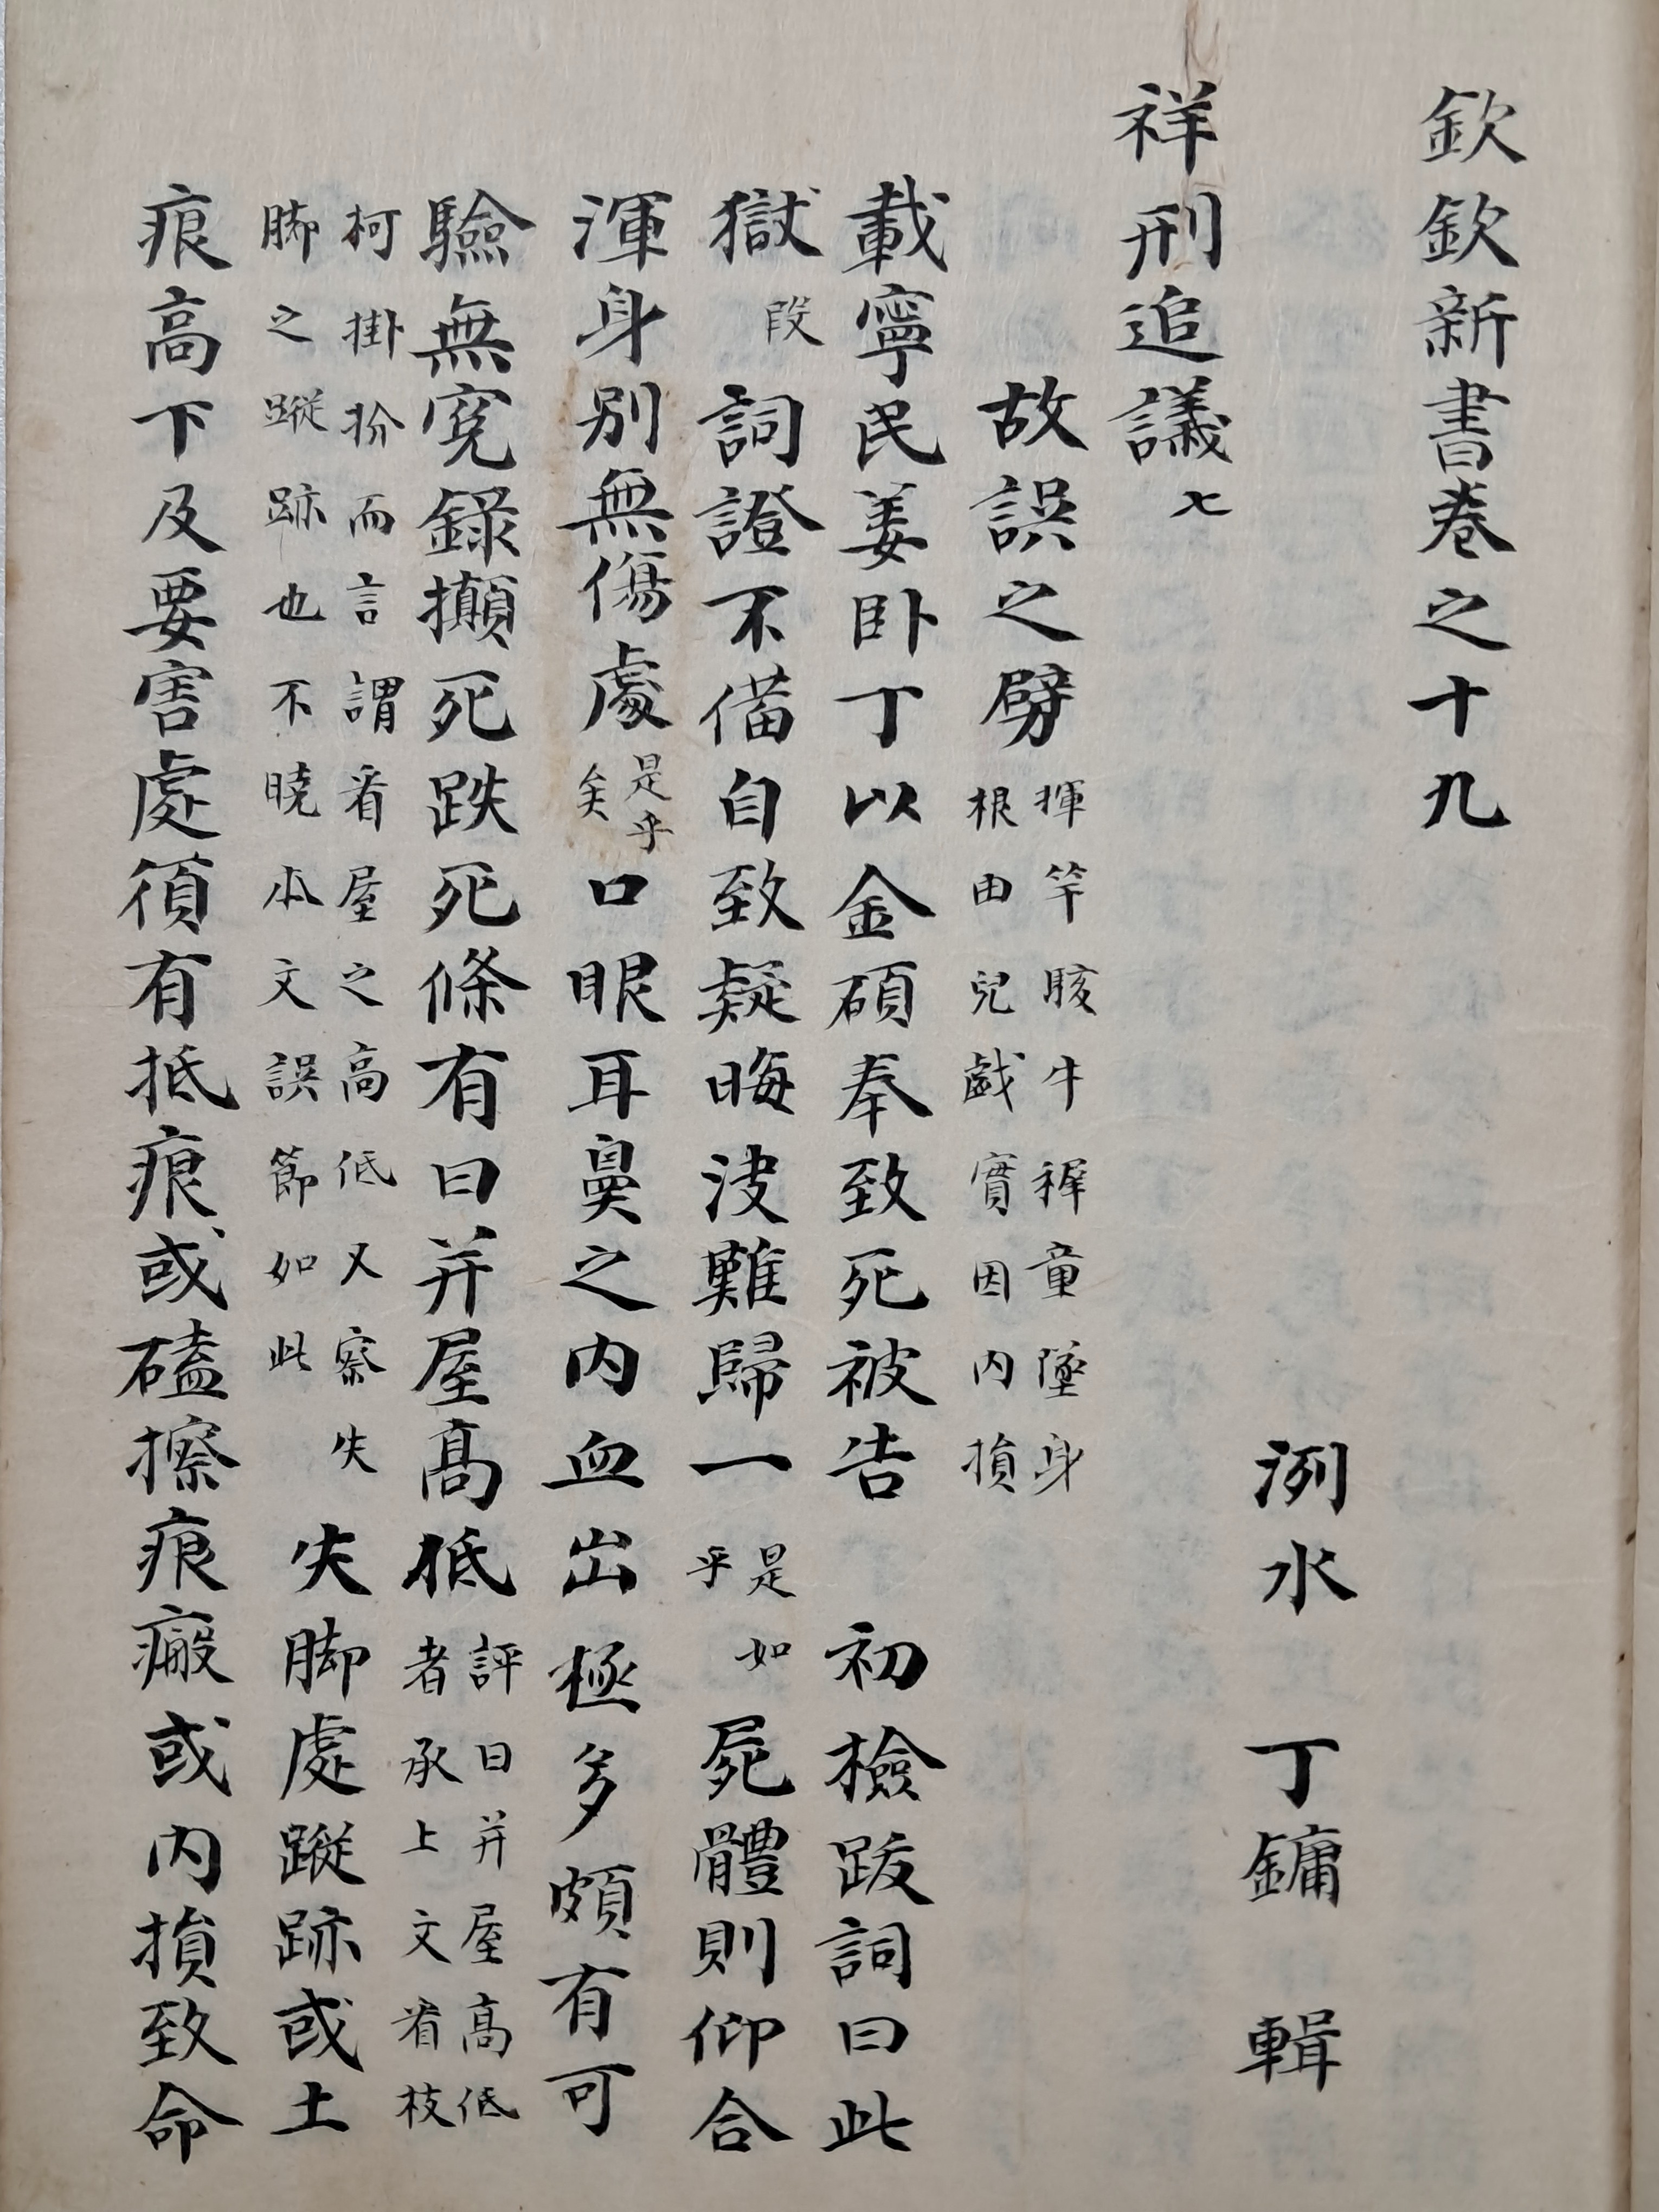 欽欽新書卷之十九
洌水 丁鏞 輯
祥刑追議 七
故誤之劈 揮竿駭牛稺童墜身
根由兒戱實因內損
載寧民姜臥丁以金碩奉致死被告 初檢跋詞曰此
獄 段 詞證不備自致疑晦決難歸一 是如
乎 屍體則仰合
渾身別無傷處 是乎
矣 口眼耳鼻之內血出極多頗有可
驗無寃錄攧死跌死條有曰并屋高低 評曰并屋高低
者承上文看枝
柯掛扮而言謂看屋之高低又察失
脚之蹤跡也不曉本文誤節如此 失脚處蹤跡或土
痕高下及要害處須有抵痕或磕擦痕瘢或內損致命